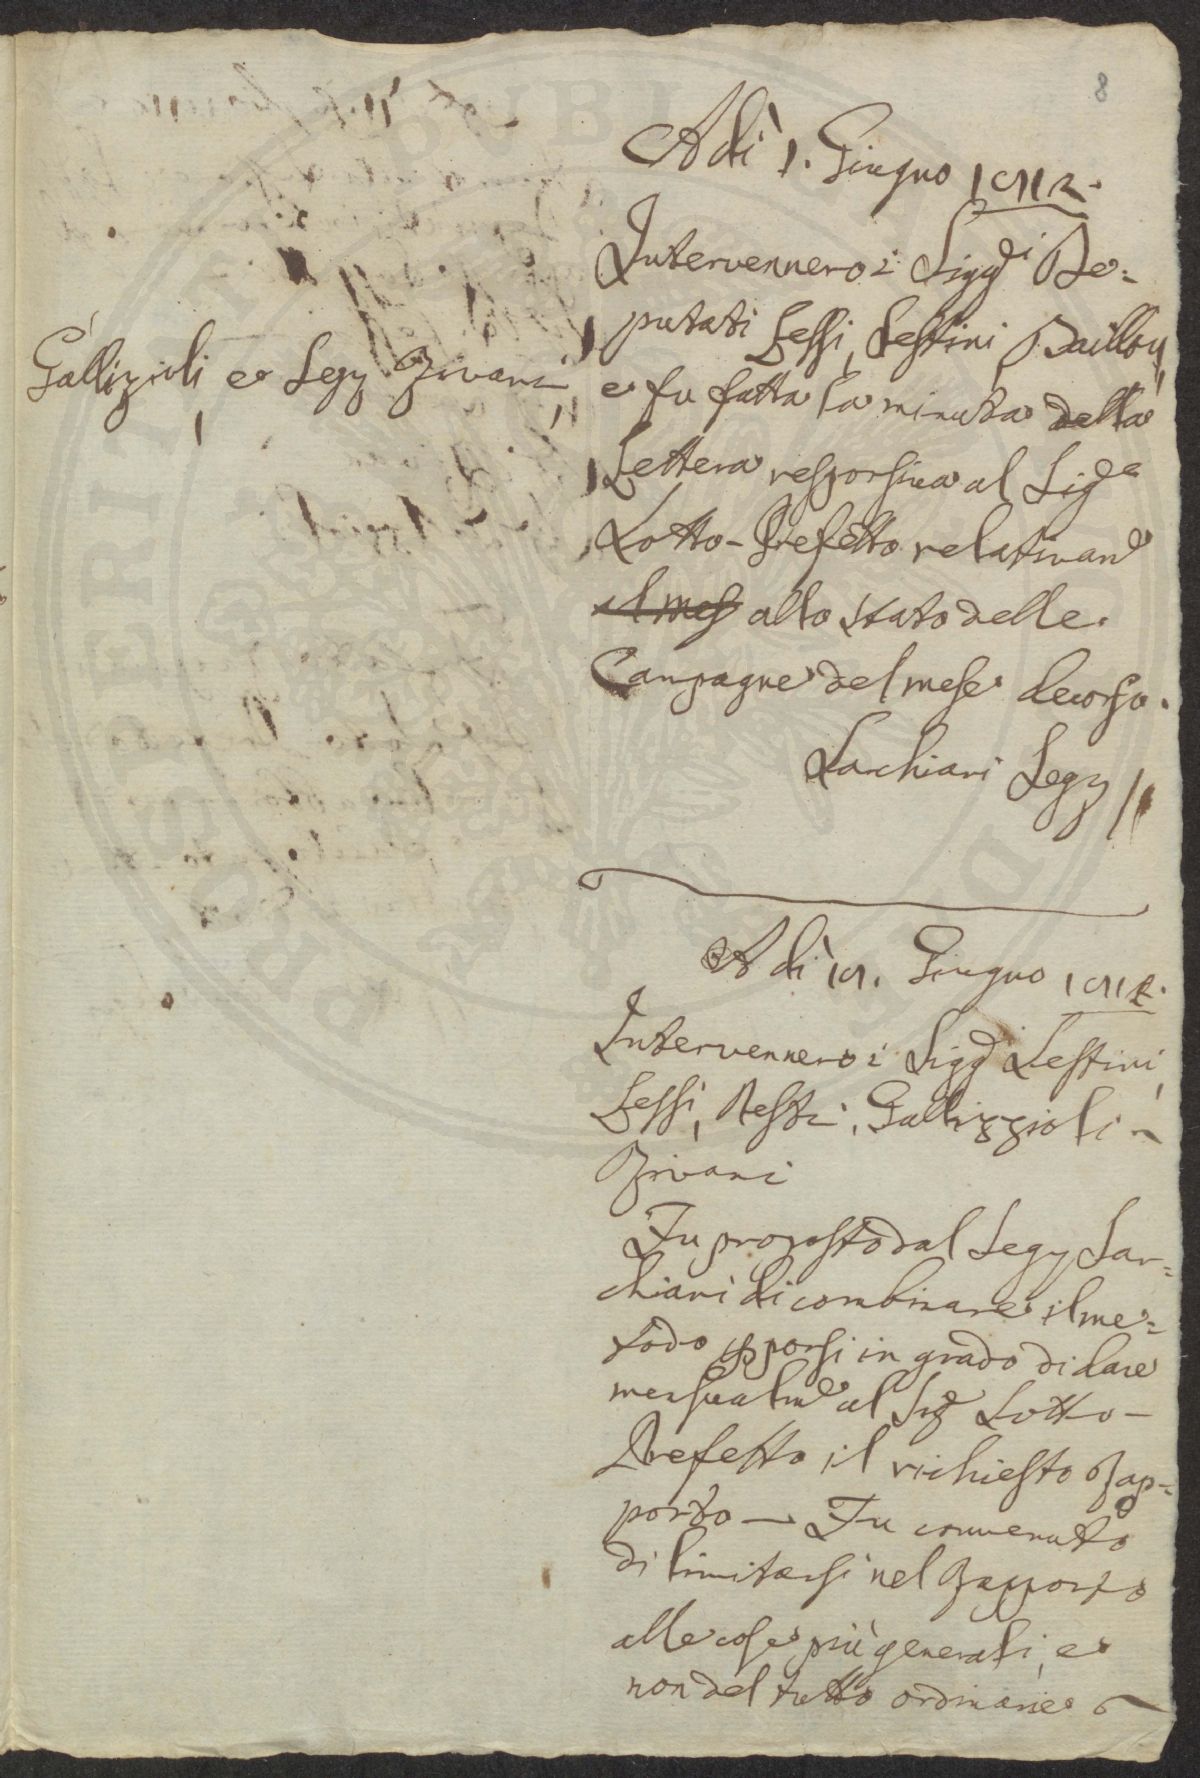 8
A dì 1. Giugno 1812.
Intervennero i Sigg.ri De=
putati Zessi, Sestini, Baillou,
Gallizioli, e Segr. Rivani,
e fu fatta la minuta della
Lettera responsiva al Sig.e
Sotto-Prefetto relativam.e
al mes allo stato delle
Campagne del mese decorso.
Larchiari Segr.
A dì 19. Giugno 1812.
Intervennero i Sigg. Sestini,
Zessi, Resti, Gallizzioli
Rivani
Fu proposto dal Segr. Lar=
chiari di combinare il me=
todo p porsi in grado di dare
mensualm.e al Sig. Sotto-
Prefetto il richiesto Rap=
porto — Fu convenuto
di limitarsi nel Rapporto
alle cose più generali, e
non del tutto ordinarie